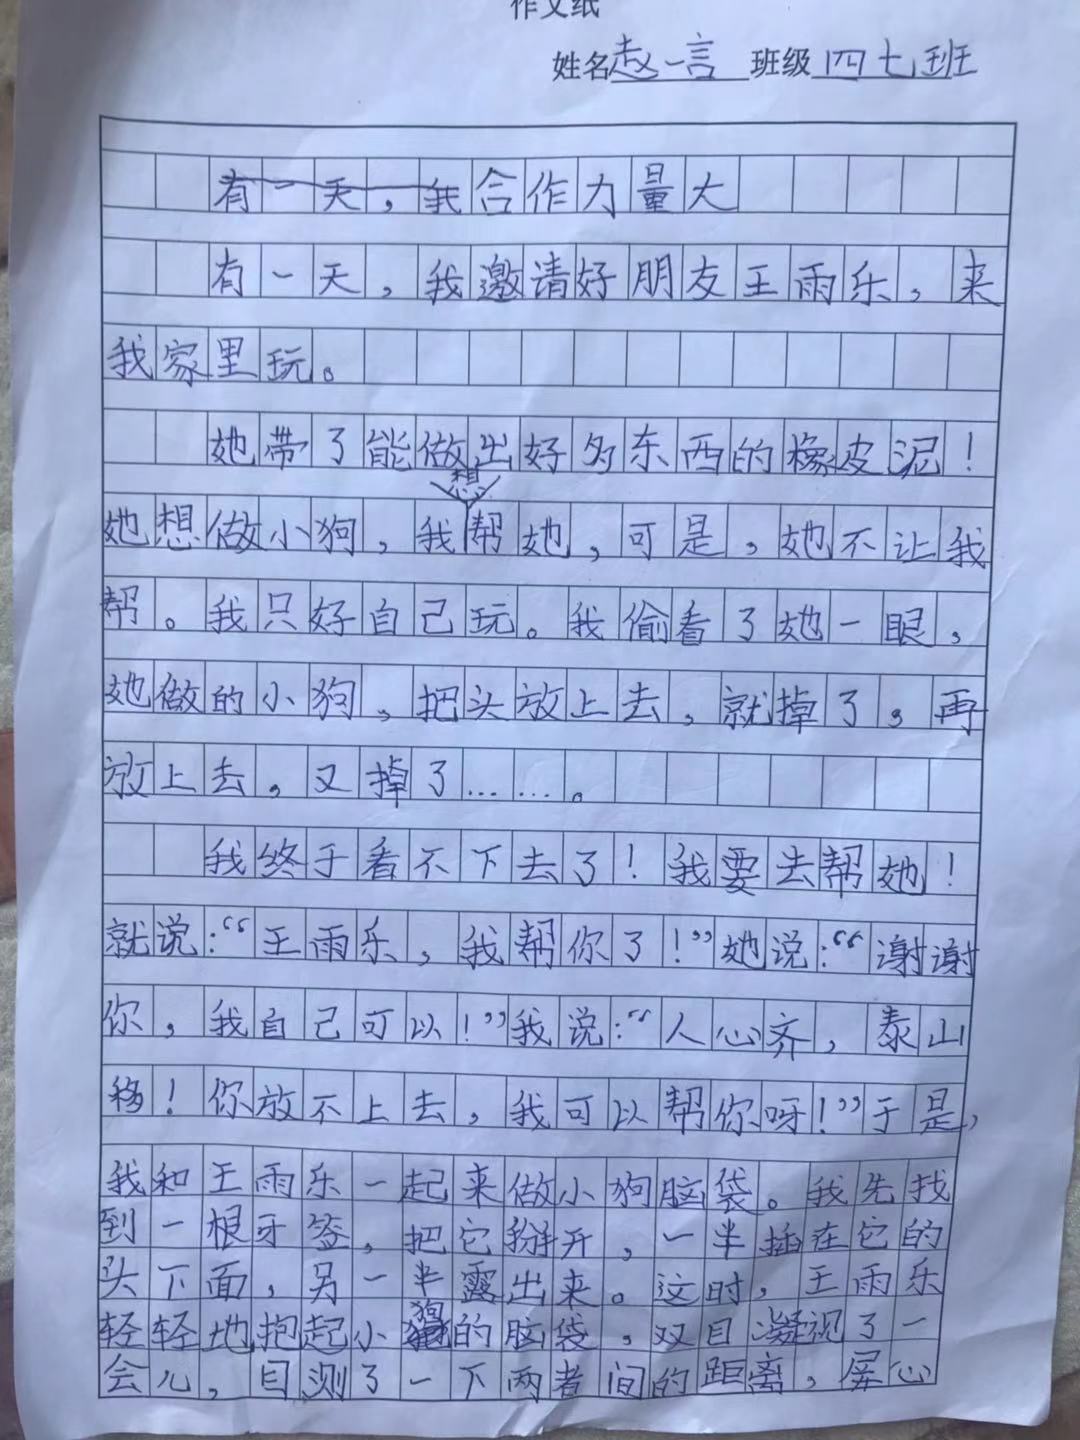 作文纸
姓名赵一言 班级四七班
有一天，我合作力量大
有一天，我邀请好朋友王雨乐，来
我家里玩。
她带了能做出好多东西的橡皮泥！
她想做小狗，我想帮她，可是，她不让我
帮。我只好自己玩。我偷看了她一眼，
她做的小狗，把头放上去，就掉了，再
放上去，又掉了……。
我终于看不下去了！我要去帮她！
就说：“王雨乐，我帮你了！”她说：“谢谢
你，我自己可以！”我说：“人心齐，泰山
移！你放不上去，我可以帮你呀！”于是，
我和王雨乐一起来做小狗脑袋。我先找
到一根牙签，把它掰开，一半插在它的
头下面，另一半露出来。这时，王雨乐
轻轻地抱起小狗的脑袋，双目凝视了一
会儿，目测了一下两者间的距离，屏心